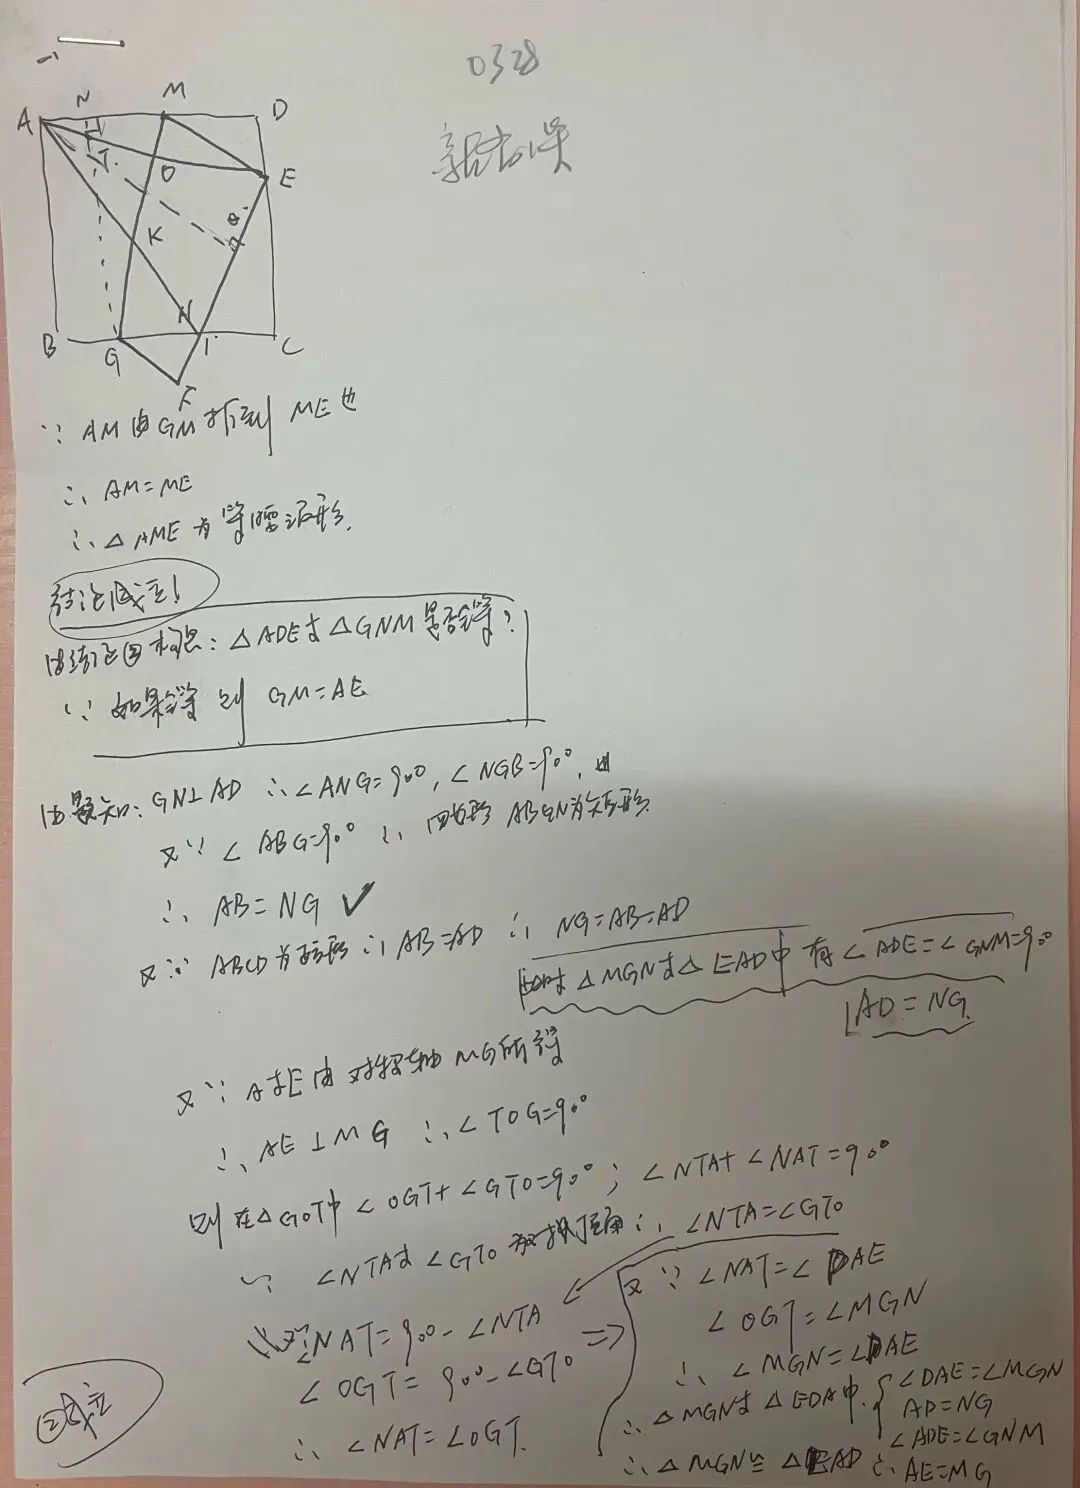 0328
A N M D
T
O
E
Q
K
H
B G I C
F
∵ AM由GM折到ME也
∴ AM=ME
∴ △AME为等腰三角形.
结论①成立!
由结论②构思: △ADE与△GNM是否全等?
∵ 如果全等 则 GM=AE
由题知: GN⊥AD ∴∠ANG=90°, ∠NGB=90°.
又∵ ∠ABG=90° ∴ 四边形ABGN为矩形.
∴ AB=NG ✓
又∵ ABCD为正方形 ∴AB=AD ∴ NG=AB=AD
△MGN与△EAD中 有∠ADE=∠GNM=90°
AD=NG.
又∵ A与E由对称轴MG所得
∴ AE⊥MG ∴∠TOG=90°
则在△GOT中 ∠OGT+∠GTO=90°; ∠NTA+∠NAT=90°
∵ ∠NTA与∠GTO为对顶角 ∴ ∠NTA=∠GTO
∠NAT=90°-∠NTA
∠OGT=90°-∠GTO ⇒
∴ ∠NAT=∠OGT.
又∵ ∠NAT=∠DAE
∠OGT=∠MGN
∴ ∠MGN=∠DAE
∴ △MGN与△EDA中. { ∠DAE=∠MGN
AD=NG
∠ADE=∠GNM
∴ △MGN≌△EAD ∴ AE=MG
②成立